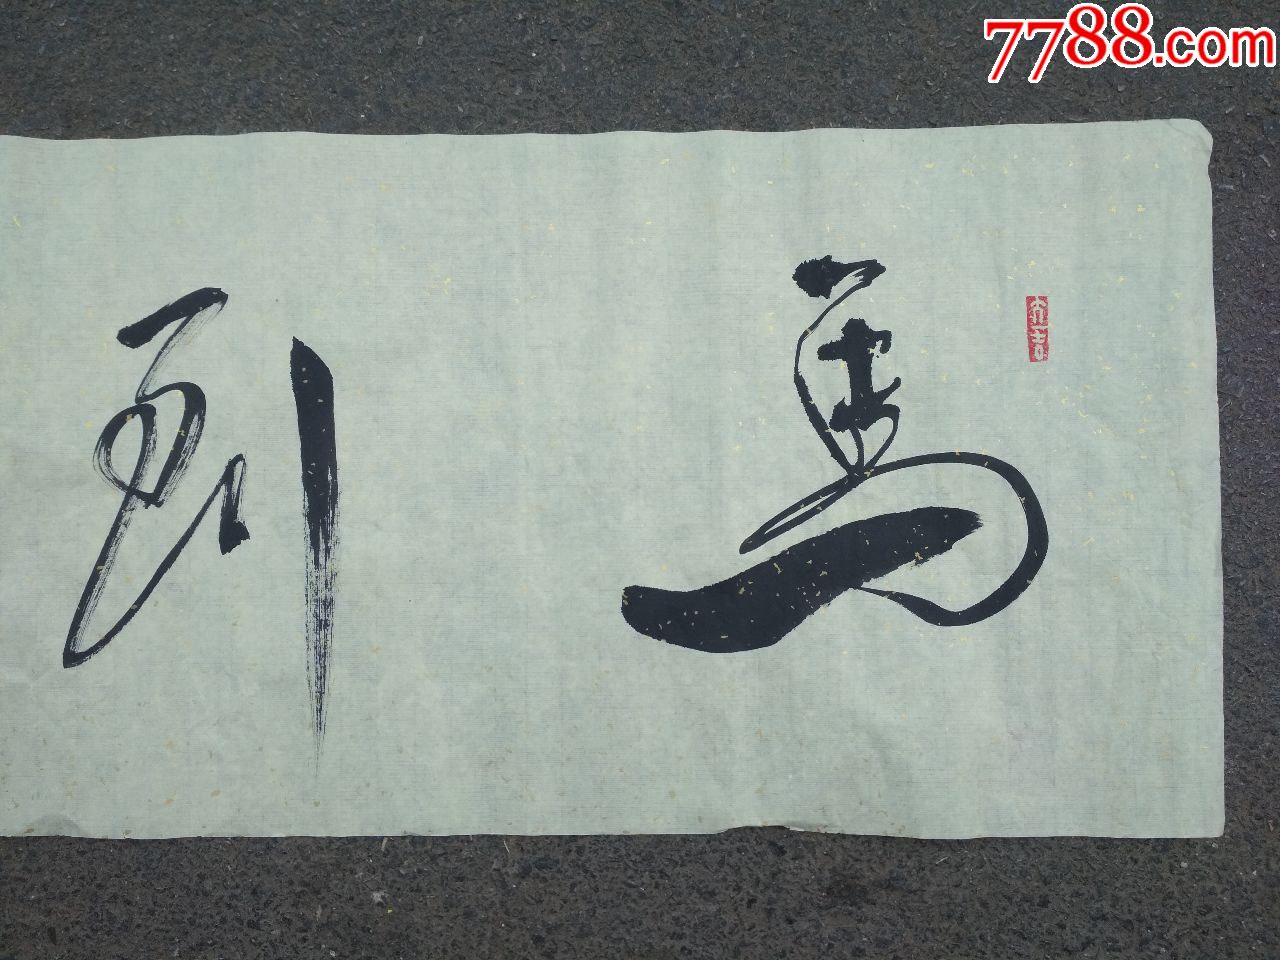 7788.com
馬到
大吉